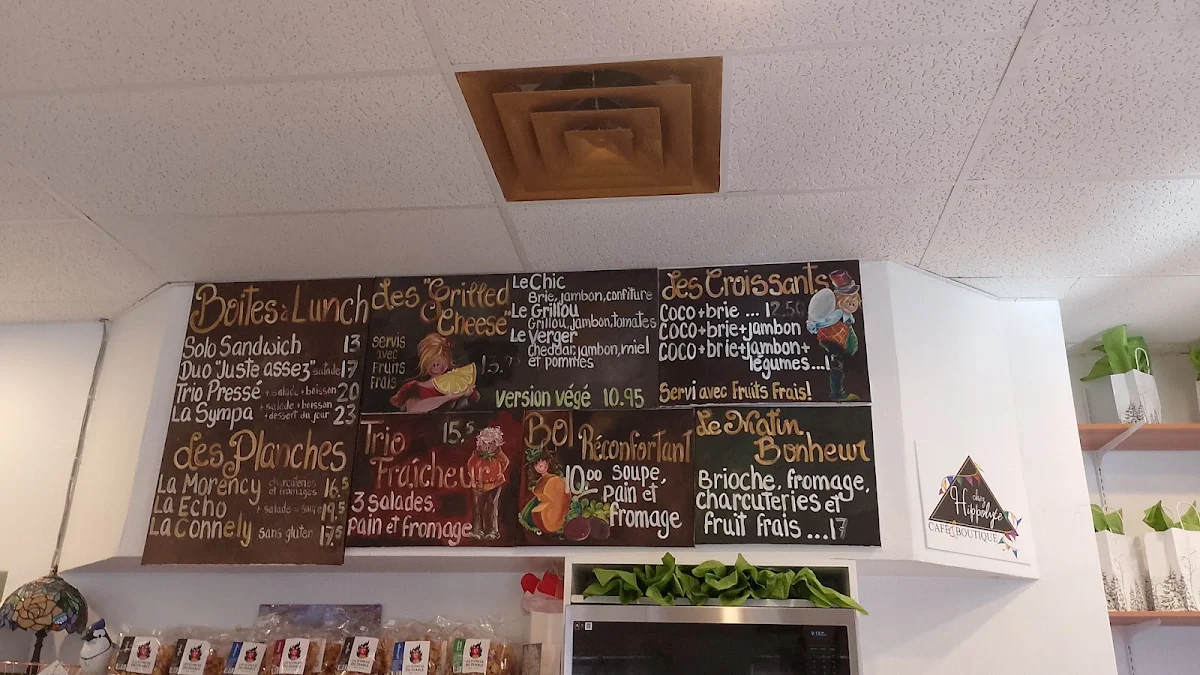 Boîtes à Lunch
Solo Sandwich 13
Duo "Juste assez" salade 17
Trio Pressé + salade + boisson 20
La Sympa + salade + boisson + dessert du jour 23
Les Planches
La Morency charcuteries et fromages 16.5
La Écho + salade 19.5
La Connelly sans gluten 17.5
Les "Grilled Cheese"
servis
avec
Fruits
Frais
Le Chic
Brie, jambon, confiture
Le Grillou
Grillou, jambon, tomates
Le Verger
Cheddar, jambon, miel
et pommes
Version végé 10.95
Les Croissants
Coco+brie ... 12.50
Coco+brie+jambon
Coco+brie+jambon+
légumes...
Servi avec Fruits Frais!
Trio 15.5
Fraîcheur
3 salades,
pain et fromage
Bol
Réconfortant
10.00 soupe,
pain et
fromage
Le Matin
Bonheur
Brioche, fromage,
charcuteries et
fruit frais ...17
chez
Hippolyte
CAFÉ BOUTIQUE